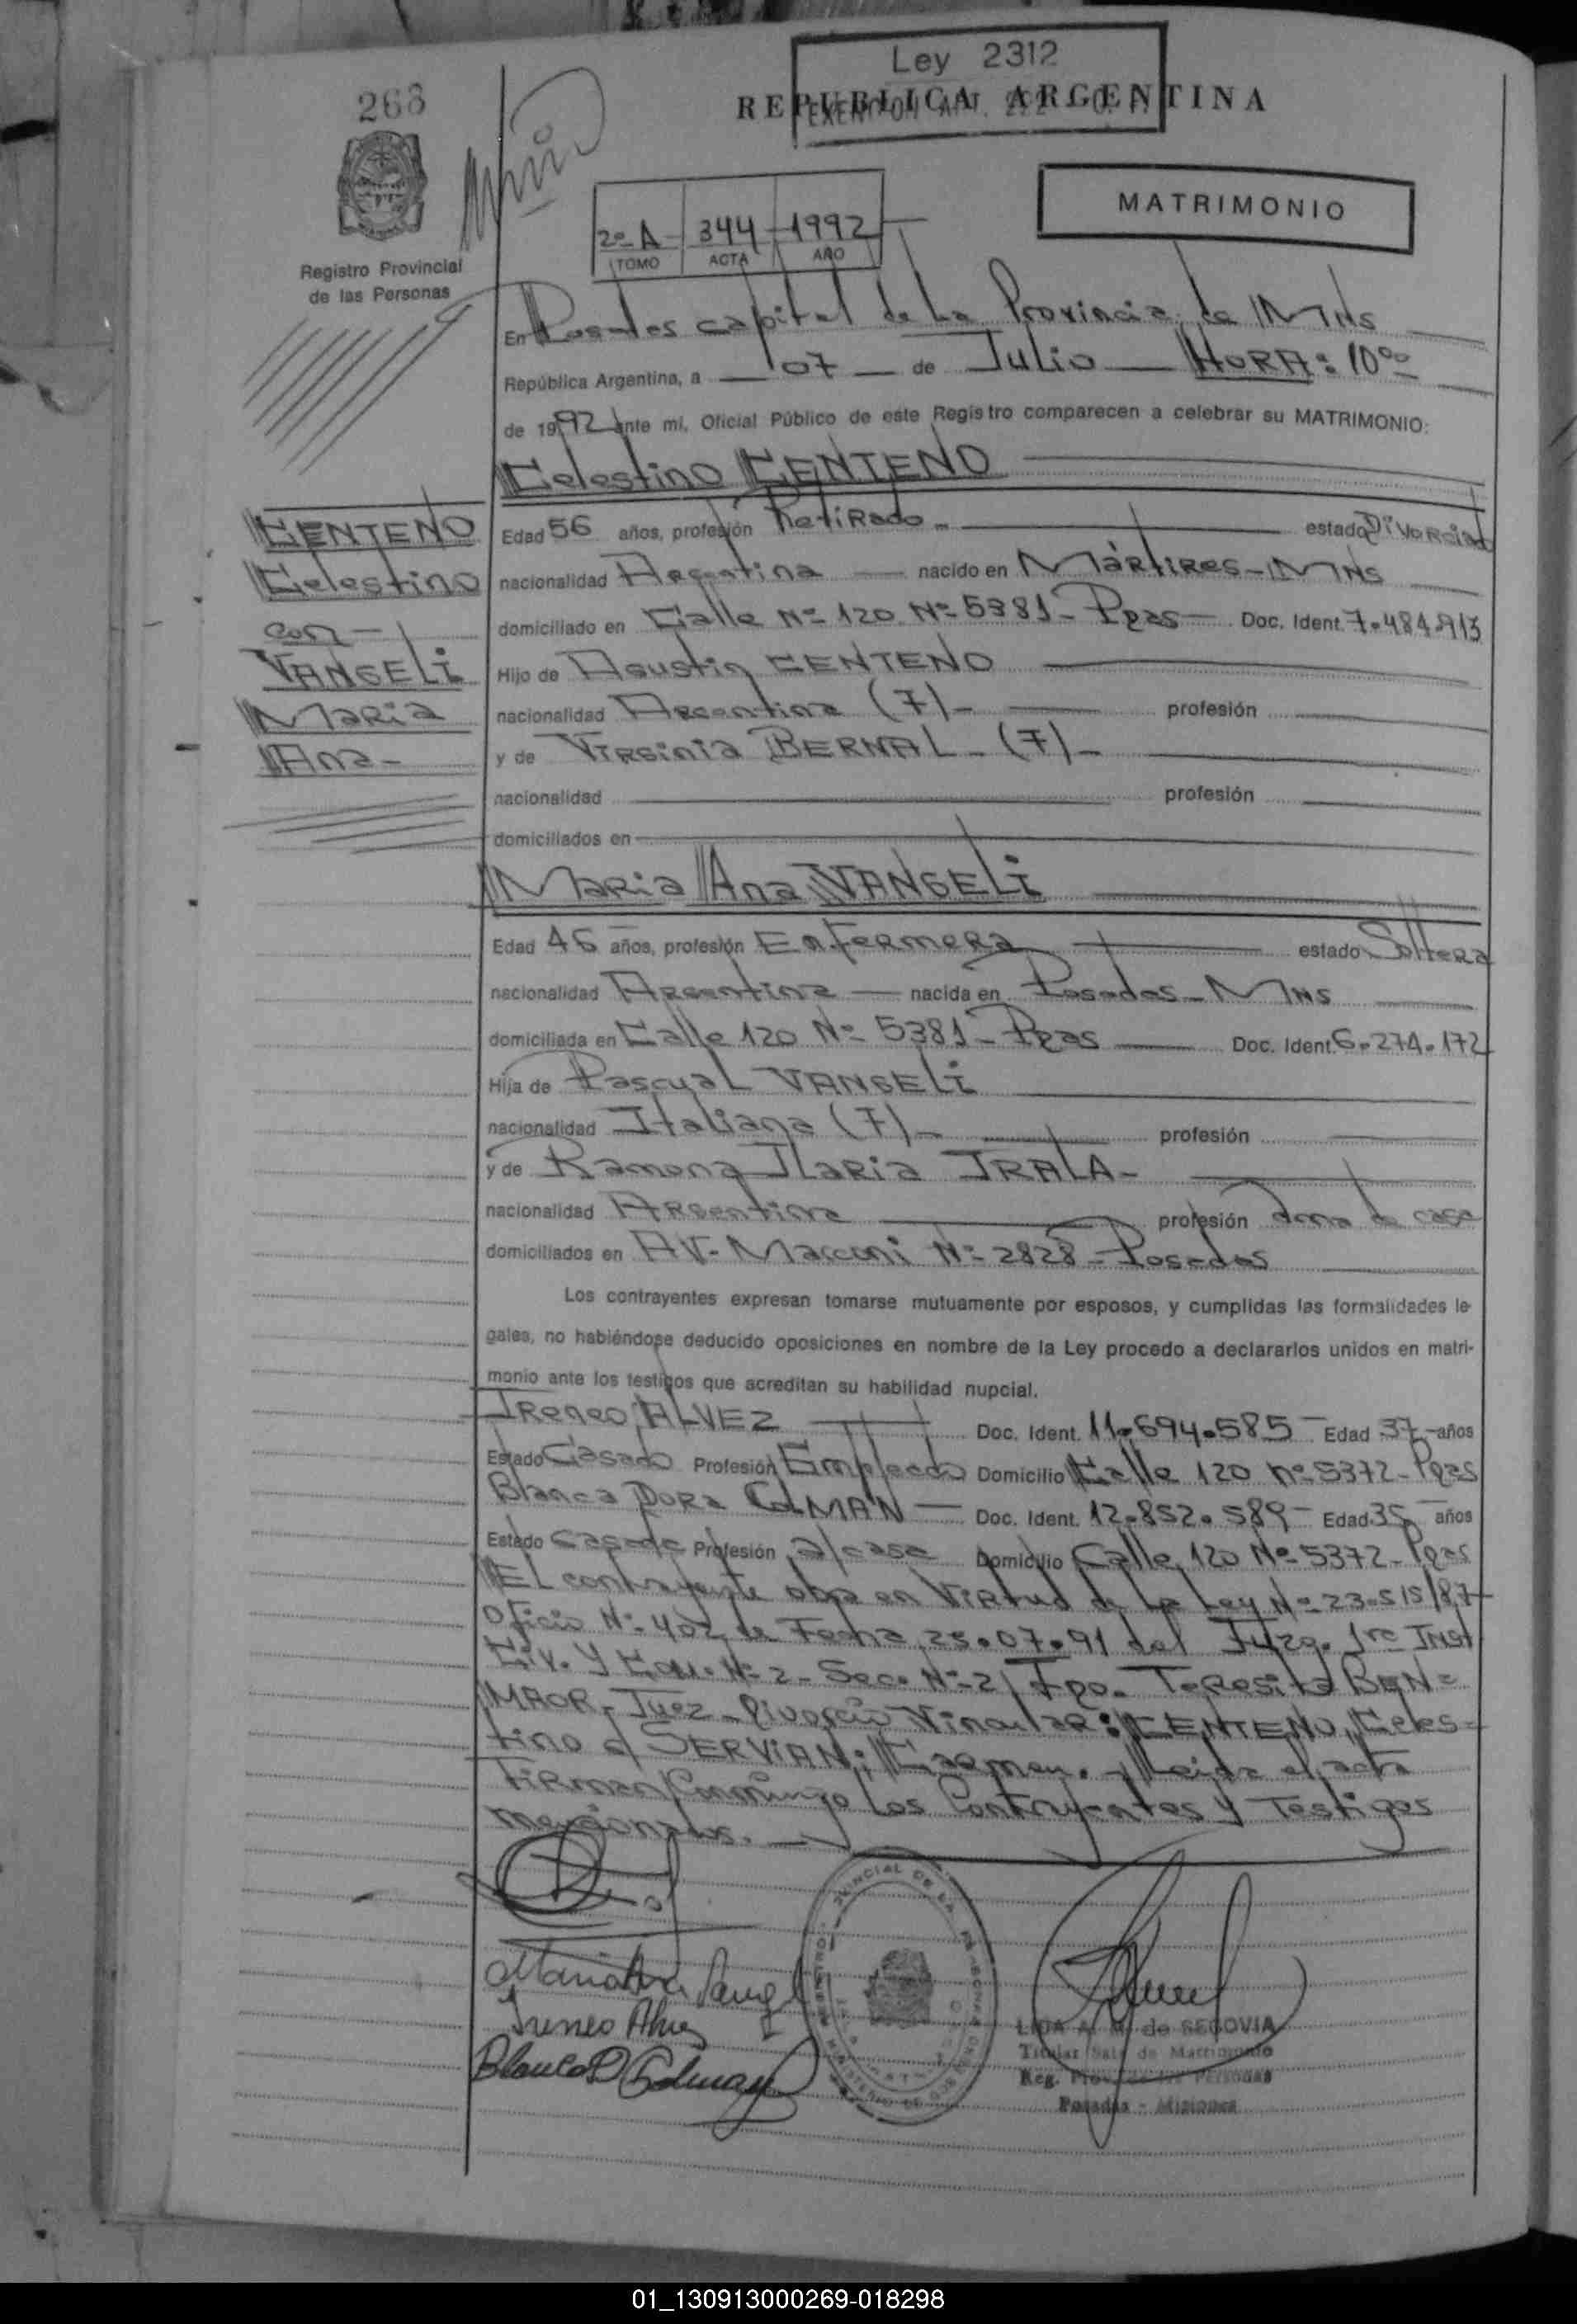 Ley 2312
REPUBLICA ARGENTINA
268
MATRIMONIO
2º A 344 1992
TOMO ACTA AÑO
Registro Provincial
de las Personas
En Posadas capital de la Provincia de Mns
República Argentina, a 07 de Julio HORA: 10ºº
de 1992 ante mi, Oficial Público de este Registro comparecen a celebrar su MATRIMONIO:
Celestino CENTENO
CENTENO
Celestino
con
VANGELI
Maria
Ana-
Edad 56 años, profesión Retirado estado Divorciado
nacionalidad Argentina nacido en Mártires-Mns
domiciliado en Calle Nº 120 Nº 5381- Pdas Doc. Ident. 7.484.913
Hijo de Agustin CENTENO
nacionalidad Argentina (7)- profesión
y de Virginia BERNAL- (7)-
nacionalidad profesión
domiciliados en
Maria Ana VANGELI
Edad 46 años, profesión Enfermera estado Soltera
nacionalidad Argentina nacida en Posadas-Mns
domiciliada en Calle 120 Nº 5381- Pdas Doc. Ident. 6.274.172
Hija de Pascual VANGELI
nacionalidad Italiana (7)- profesión
y de Ramona Ilaria IRALA-
nacionalidad Argentina profesión ama de casa
domiciliados en AV. Marconi Nº 2828- Posadas
Los contrayentes expresan tomarse mutuamente por esposos, y cumplidas las formalidades le-
gales, no habiéndose deducido oposiciones en nombre de la Ley procedo a declararlos unidos en matri-
monio ante los testigos que acreditan su habilidad nupcial.
Ireneo ALVEZ Doc. Ident. 11.694.585 Edad 37 años
Estado Casado Profesión Empleado Domicilio Calle 120 nº 5372- Pdas
Blanca Dora COLMAN Doc. Ident. 12.852.589 Edad 35 años
Estado Casada Profesión a/casa Domicilio Calle 120 Nº 5372- Pdas
El contrayente obra en Virtud de la Ley Nº 23.515/87
Oficio Nº 402 de Fecha 25.07.91 del Juzg. 1ra Inst
Civ. y Com. Nº 2- Sec. Nº 2, Fdo. Teresita BEN=
MAOR- Juez- Divorcio Vincular: CENTENO, Celes=
tino c/ SERVIAN; Carmen. Leida el acta
Firman Conmigo los Contrayentes y Testigos
mencionados.
Maria Ana Vangeli
Ireneo Alvez
Blanca D Colman
LIDA A. M. de SEGOVIA
Titular Sala de Matrimonio
Reg. Prov. de las Personas
Posadas - Misiones
01_130913000269-018298